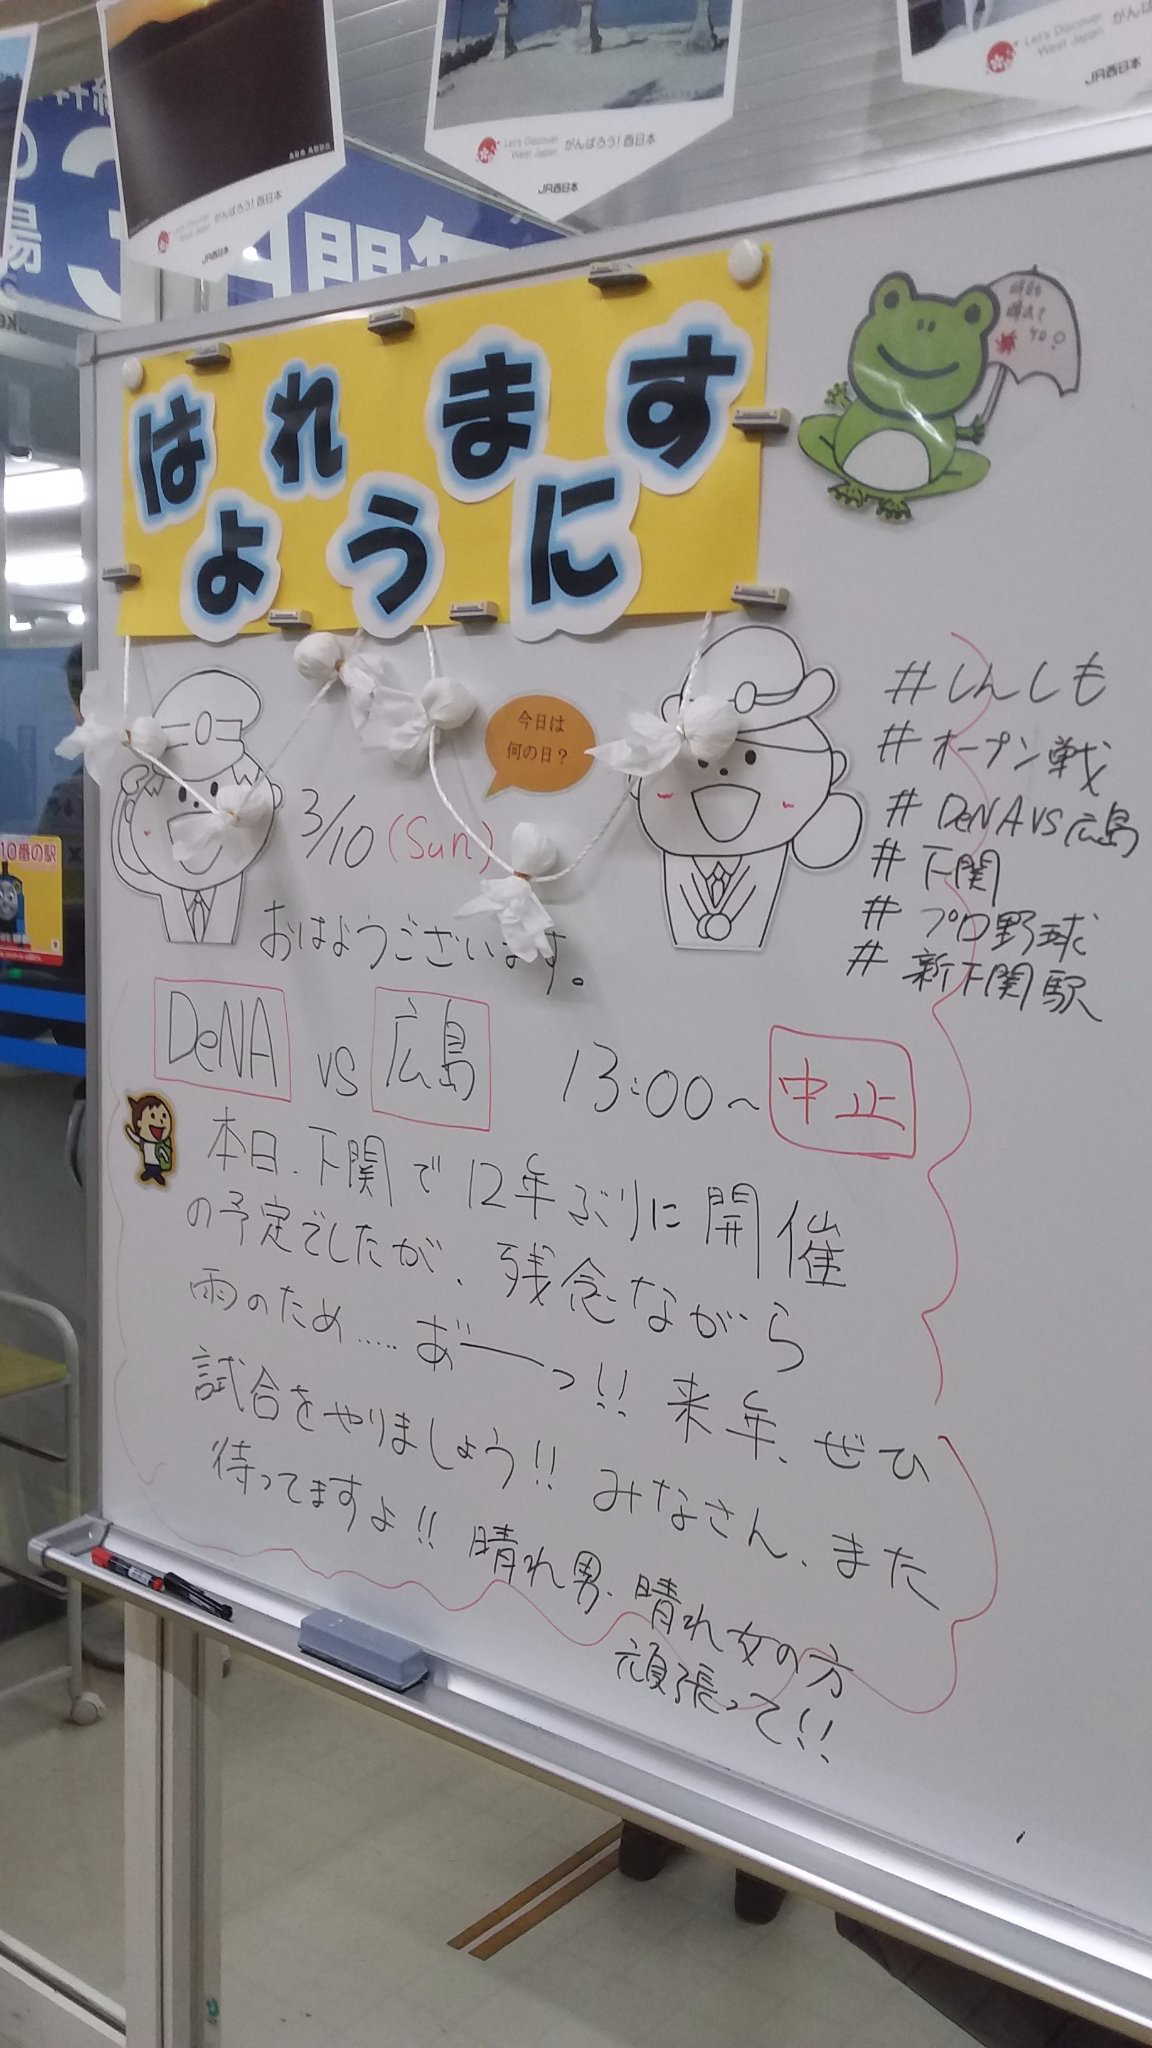 Let's Discover West Japan
がんばろう!西日本
JR西日本
Let's Discover West Japan
がんばろう!西日本
JR西日本
Let's Discover West Japan
JR西日本
はれますように
今日は
何の日?
10番の駅
3/10 (Sun)
おはようございます。
#しんしも
#オープン戦
#DeNA VS 広島
#下関
#プロ野球
#新下関駅
DeNA vs 広島 13:00~ 中止
本日、下関で12年ぶりに開催
の予定でしたが、残念ながら
雨のため……あ゛ーっ!! 来年、ぜひ
試合をやりましょう!! みなさん、また
待ってますよ!! 晴れ男、晴れ女の方
頑張って!!